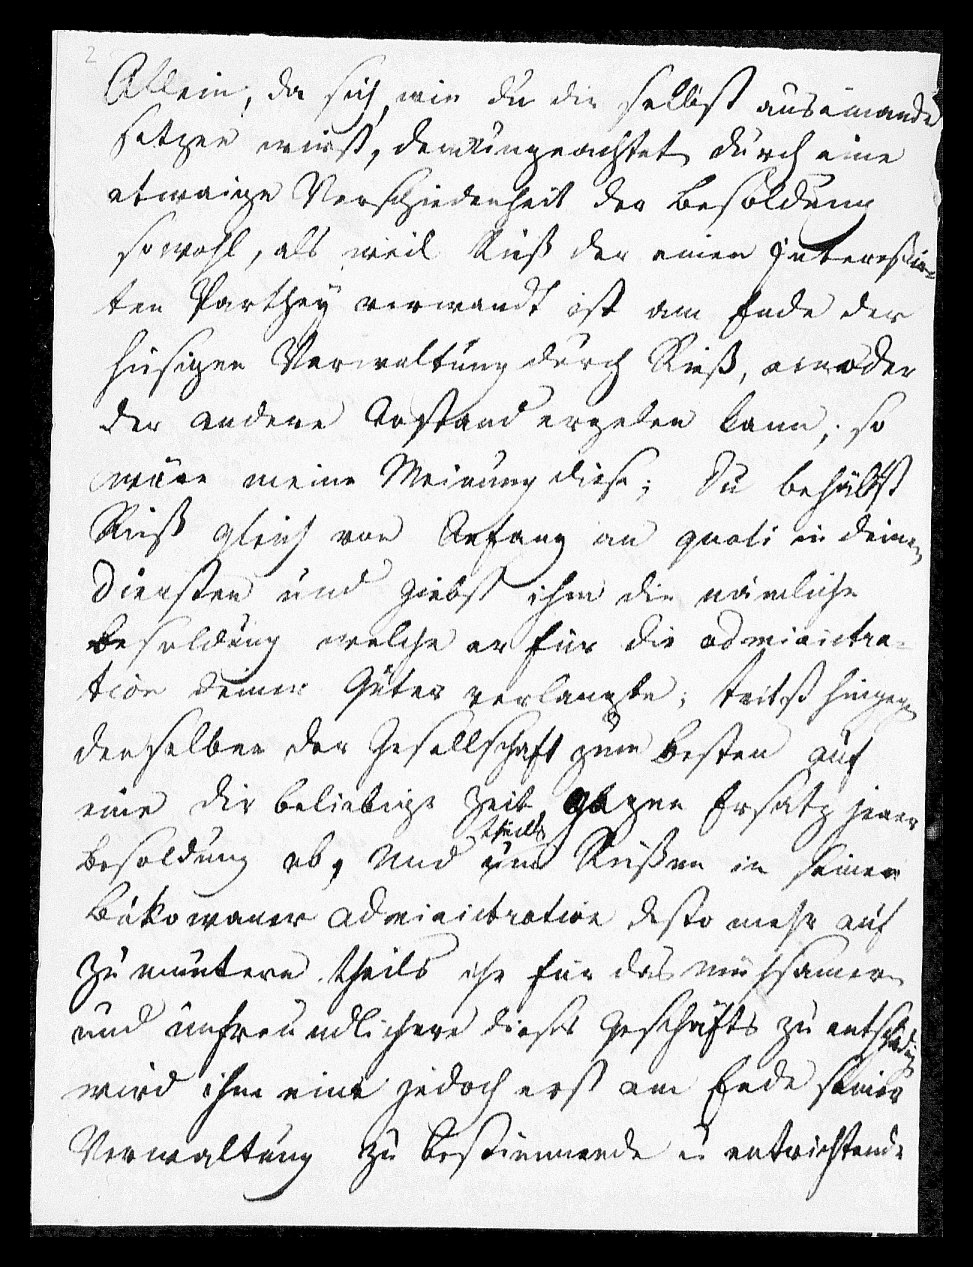 2
Allein, da sich, wie du dir selbst auseinande
setzen wirst, demungeachtet durch eine
etwaige Verschiedenheit der Besoldung
sowohl, als weil Rieß der einen Interessir-
ten Parthey verwandt ist am Ende der
hiesigen Verwaltung durch Rieß, ein oder
der andere Anstand ergeben kann; so
wäre meine Meinung diese; Du behältst
Rieß gleich von Anfang an quasi in deinen
Diensten und giebst ihm die nämliche
Besoldung welche er für die administra-
tion deiner Güter verlangte; trittst hingegen
denselben der Gesellschaft zum Besten auf
eine dir beliebige Zeit gegen Ersatz jener
Besoldung ab, Und theils um Rießen in seiner
Bukowaner administration desto mehr auf
zu muntern theils ihn für das mühsamere
und unfreundlichere dieses Geschäfts zu entschädigen
wird ihm eine jedoch erst am Ende seiner
Verwaltung zu bestimmende u entrichtende